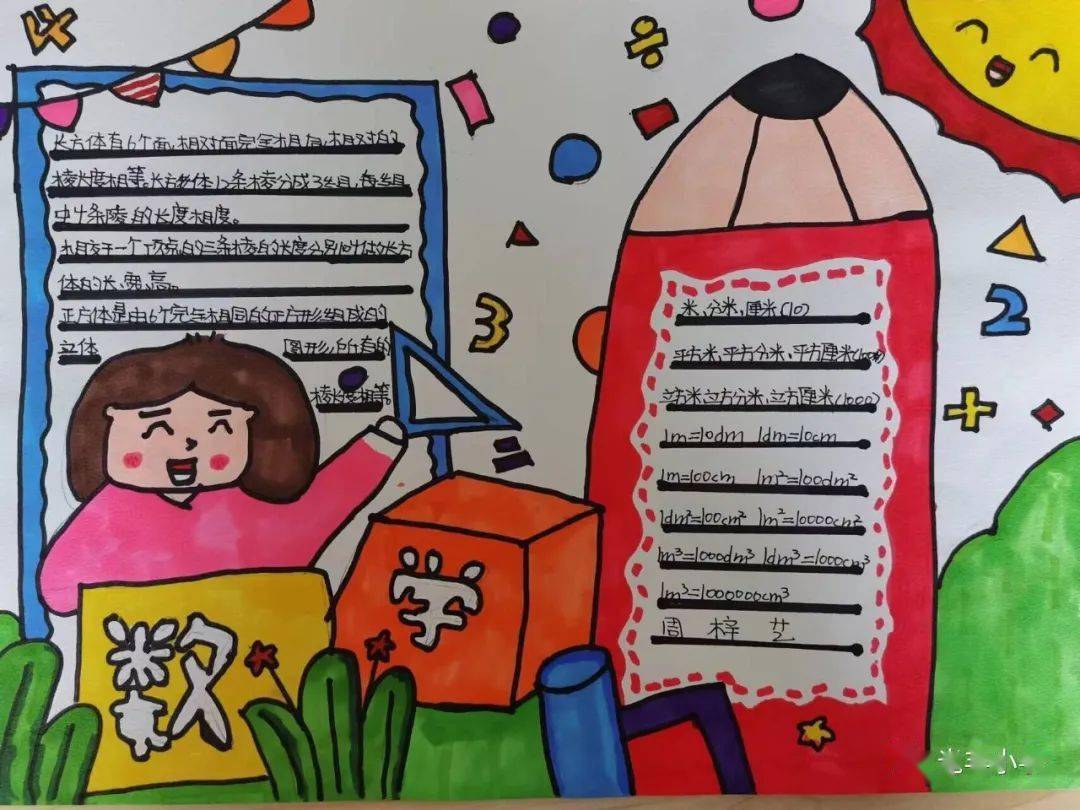 长方体有6个面,相对面完全相同,相对的
棱长度相等。长方体12条棱分成3组,每组
中4条陵的长度相度。
相交于一个顶点的三条棱的长度分别叫体长方
体的长、宽、高。
正方体是由6个完全相同的正方形组成的
立体 图形,所有的
棱长度相等。
数
学
米,分米,厘米(10)
平方米,平方分米、平方厘米(100)
立方米立方分米,立方厘米(1000)
1m=10dm 1dm=10cm
1m=100cm 1m²=100dm²
1dm²=100cm² 1m²=10000cm²
1m³=1000dm³ 1dm³=1000cm³
1m³=1000000cm³
周梓艺
4
÷
3
2
+
=